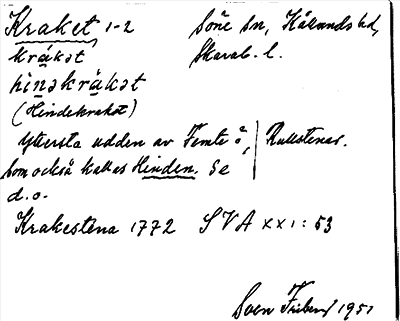 Kraket 1-2 Söne sn, Kållands hd,
kråkət Skarab. l.
hinəkråkət
(Hindekraket)
Yttersta udden av Femte ö, Rullstenar.
som också kallas Hinden. Se
d. o.
Krakestena 1772 SVA XXI: 53
Sven Friberg 1951